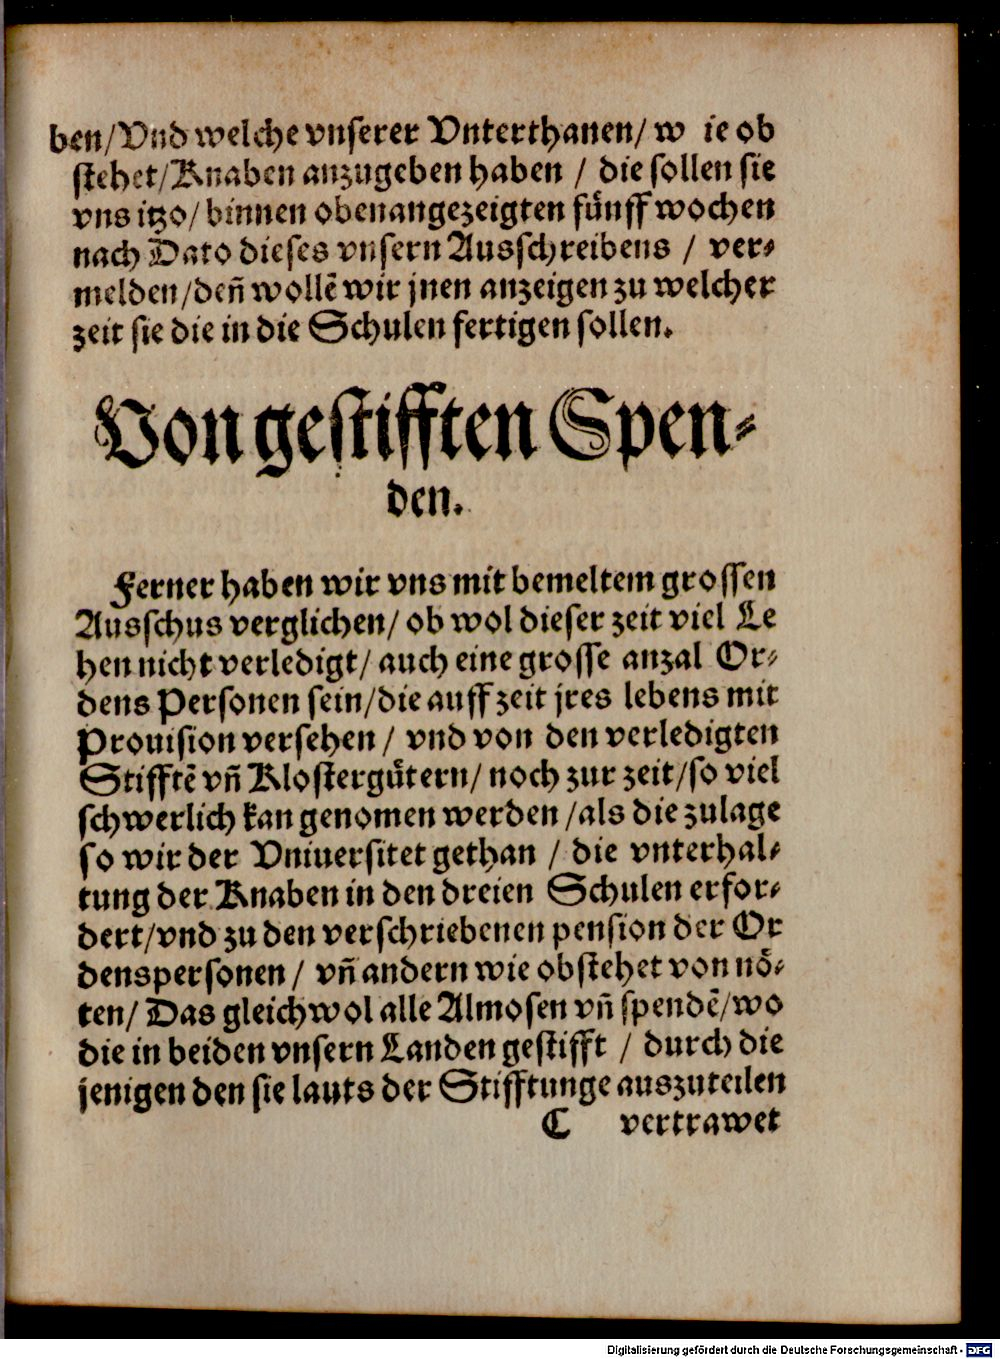 ben/Vnd welche vnserer Vnterthanen/ w ie ob
stehet/Knaben anzugeben haben / die sollen sie
vns itzo/ binnen obenangezeigten fünff wochen
nach Dato dieses vnsern Ausschreibens / ver-
melden/deñ wollẽ wir jnen anzeigen zu welcher
zeit sie die in die Schulen fertigen sollen.
Von gestifften Spen-
den.
Ferner haben wir vns mit bemeltem grossen
Ausschus verglichen/ ob wol dieser zeit viel Le
hen nicht verledigt/ auch eine grosse anzal Or-
dens Personen sein/die auff zeit jres lebens mit
Prouision versehen / vnd von den verledigten
Stifftẽ vñ Klostergütern/ noch zur zeit/so viel
schwerlich kan genomen werden /als die zulage
so wir der Vniuersitet gethan / die vnterhal-
tung der Knaben in den dreien Schulen erfor-
dert/vnd zu den verschriebenen pension der Or
denspersonen / vñ andern wie obstehet von nö-
ten/ Das gleichwol alle Almosen vñ spendẽ/wo
die in beiden vnsern Landen gestifft / durch die
jenigen den sie lauts der Stifftunge auszuteilen
C vertrawet
Digitalisierung gefördert durch die Deutsche Forschungsgemeinschaft - DFG